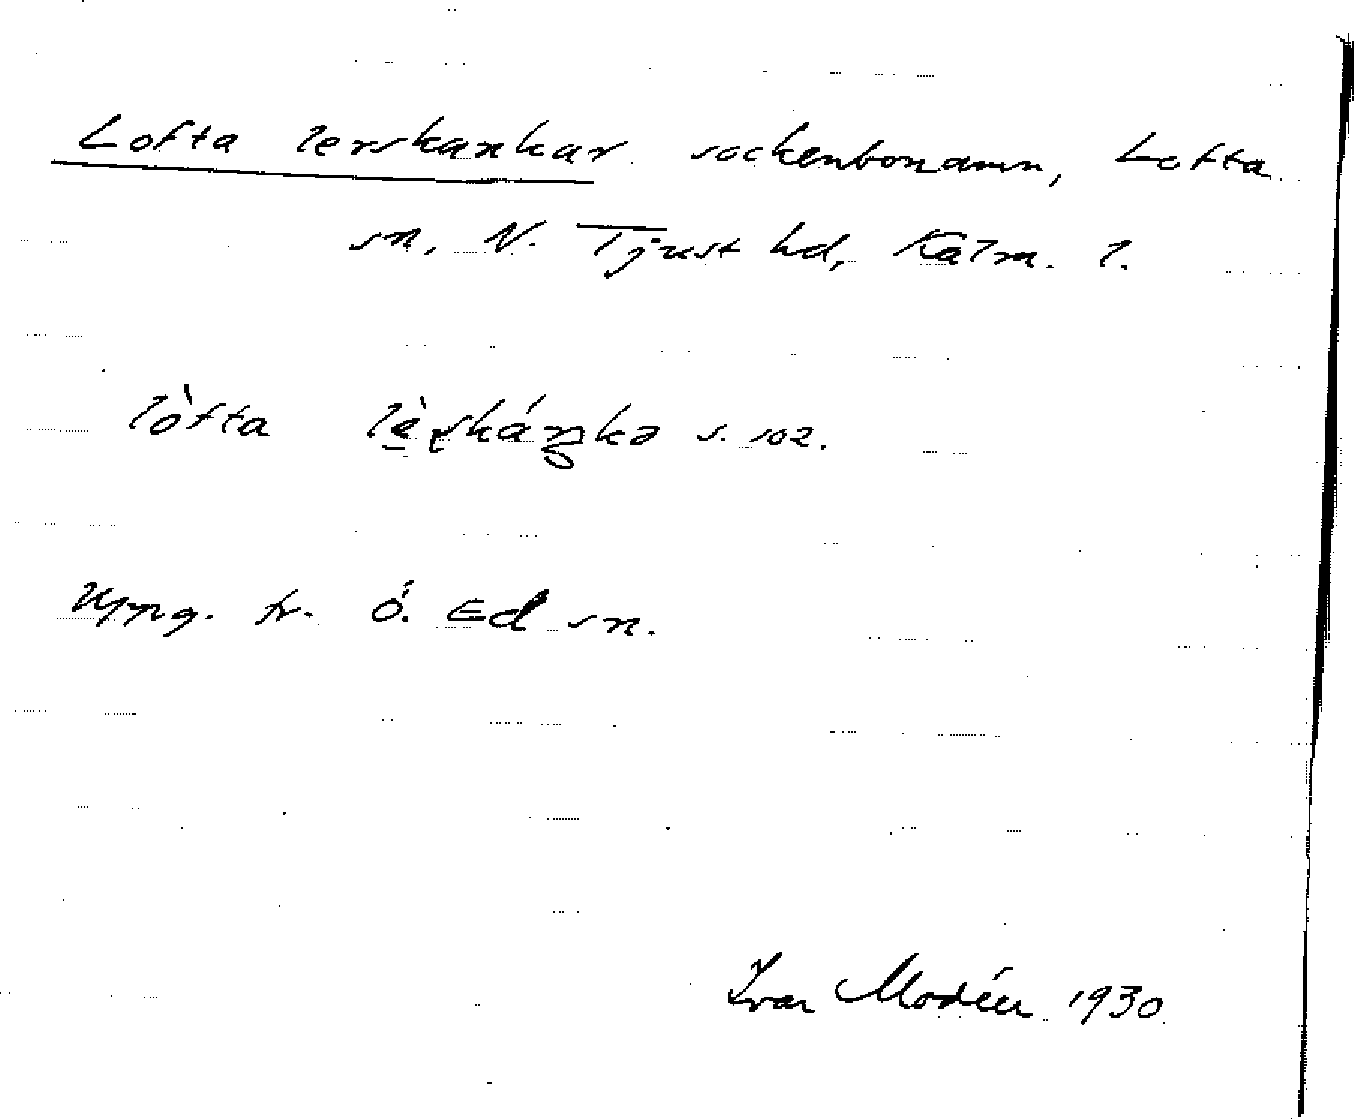 Lofta lerskankar sockenbonamn, Lofta
sn, N. Tjust hd, Kalm. l.
lòfta s. soz.
Uppg. fr. Ö. Ed sn.
Ivar Modéer 1930